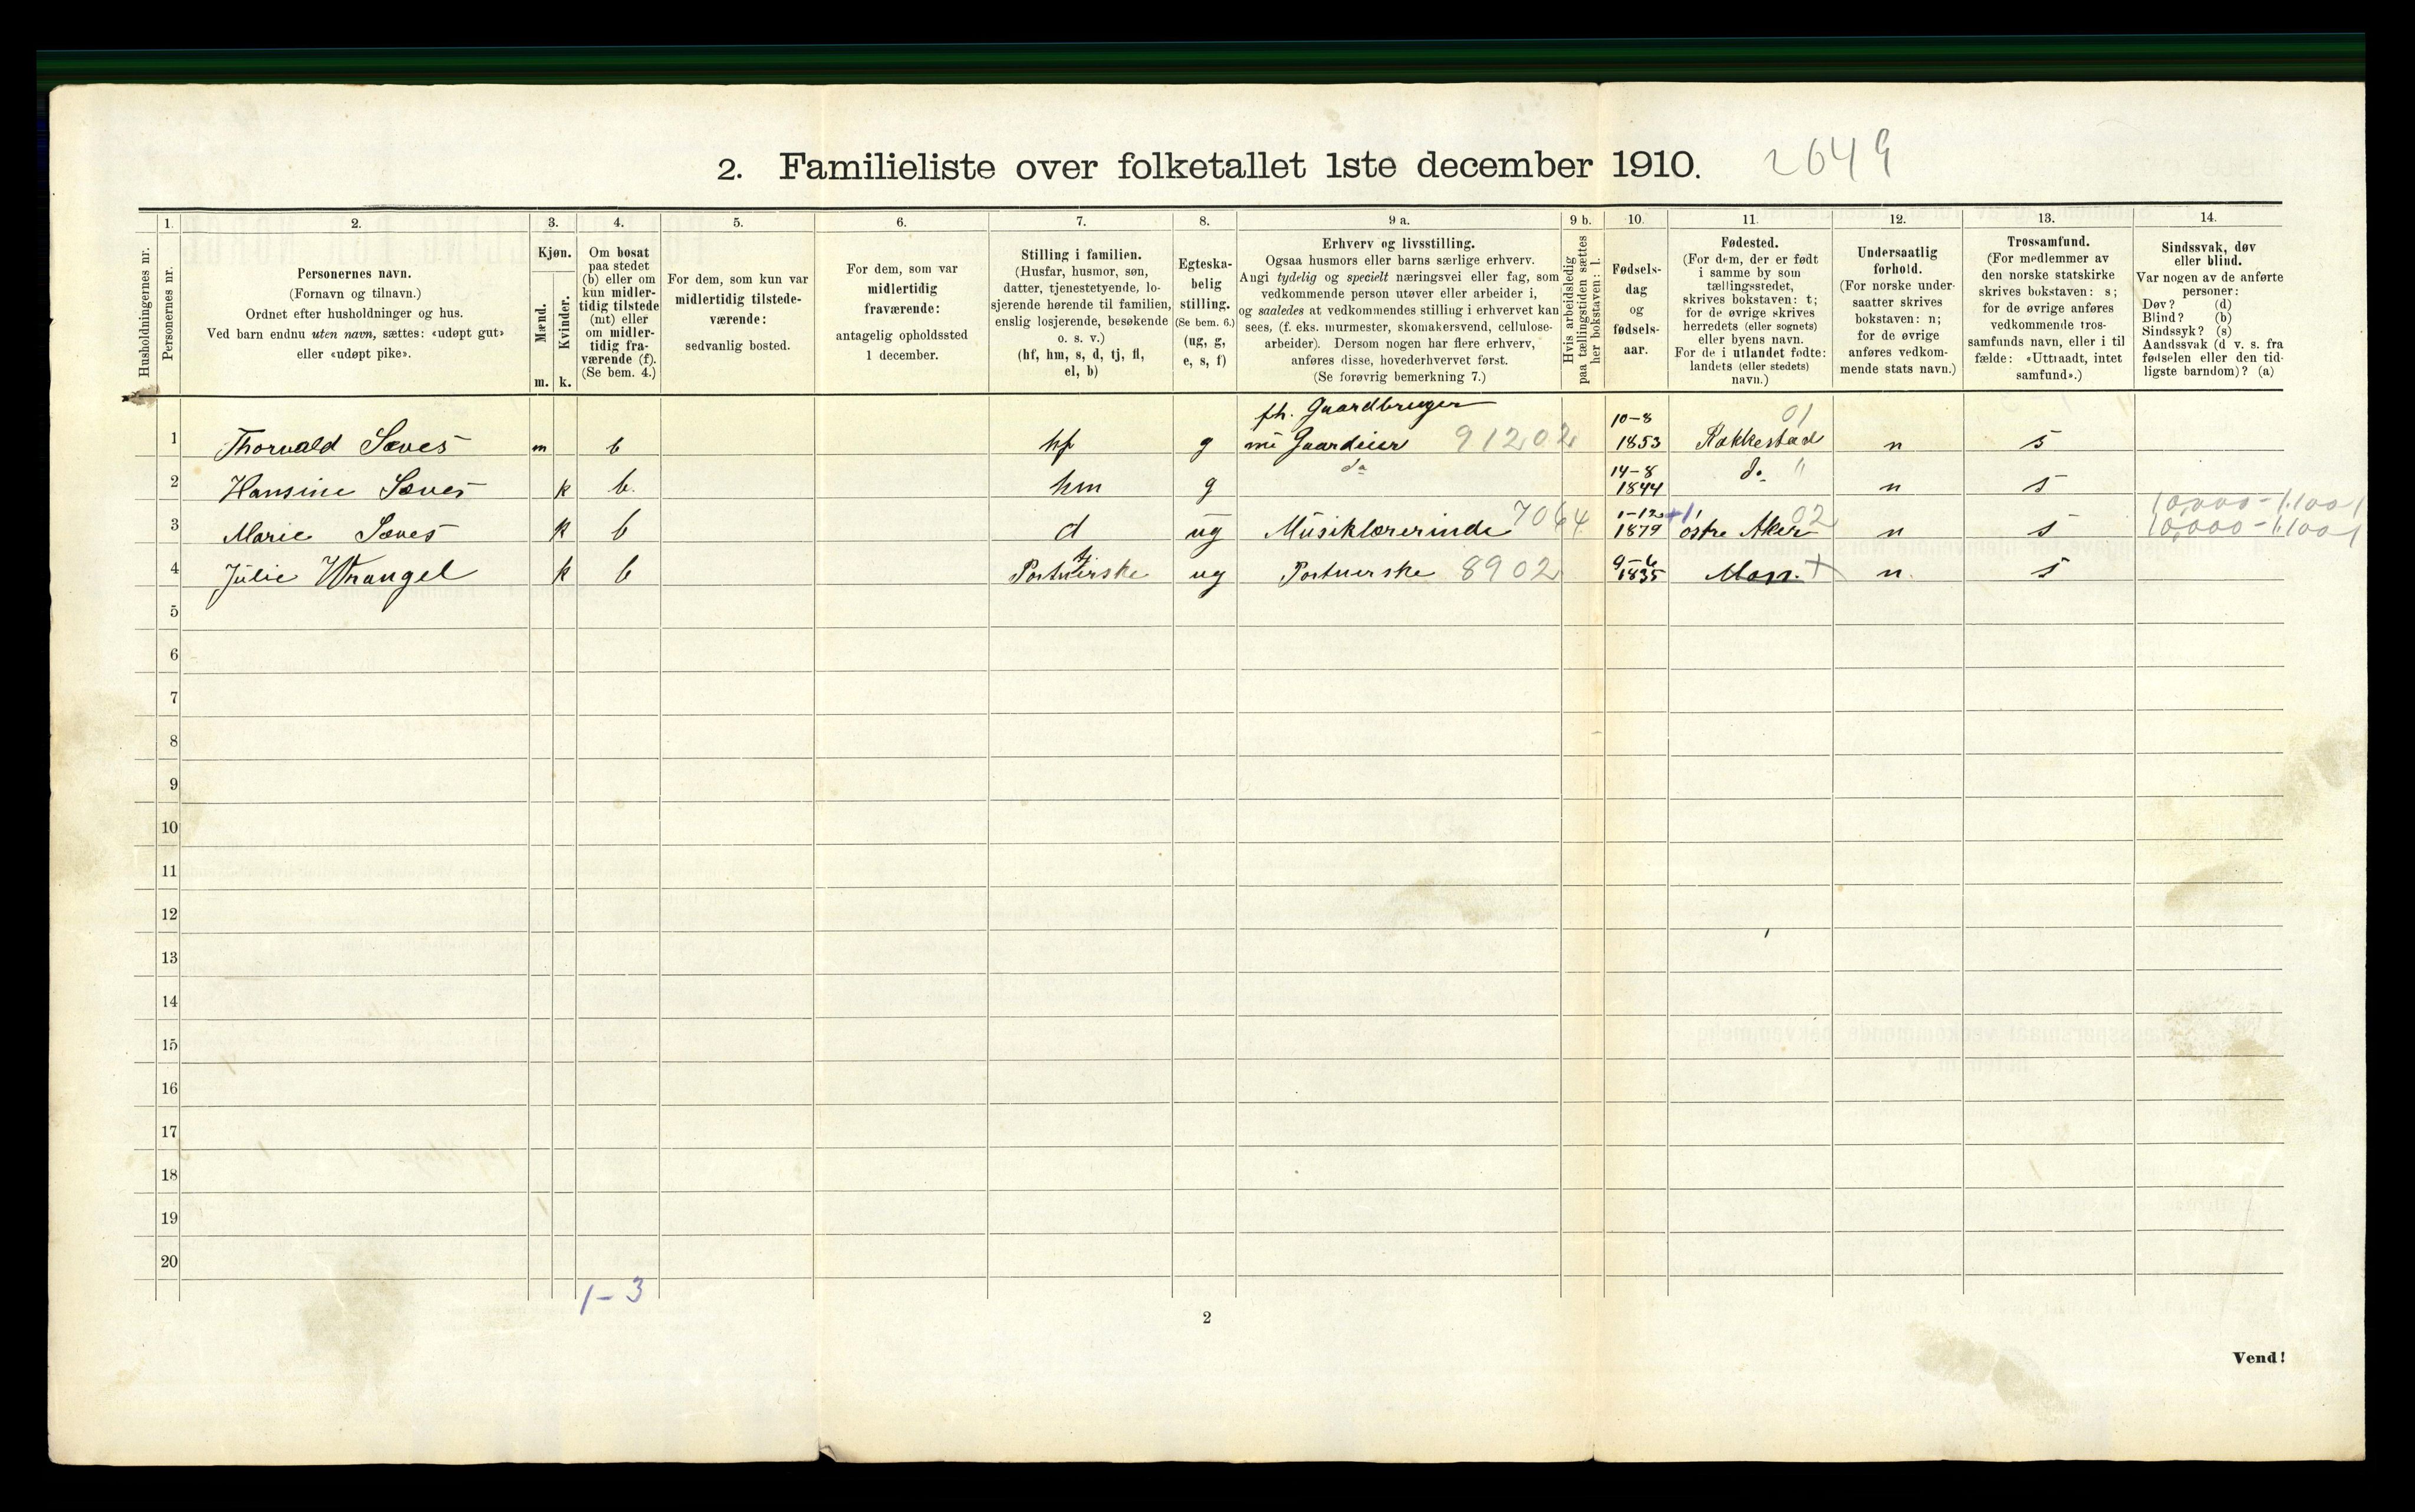 2. Familieliste over folketallet 1ste december 1910. 2649
1. 2. 3. 4. 5. 6. 7. 8. 9 a. 9 b. 10. 11. 12. 13. 14.
Husholdningernes nr.
Personernes nr.
Personernes navn.
(Fornavn og tilnavn.)
Ordnet efter husholdninger og hus.
Ved barn endnu uten navn, sættes: «udøpt gut»
eller «udøpt pike».
Kjøn.
Mænd.
Kvinder.
m. k.
Om bosat
paa stedet
(b) eller om
kun midler-
tidig tilstede
(mt) eller
om midler-
tidig fra-
værende (f).
(Se bem. 4.)
For dem, som kun var
midlertidig tilstede-
værende:
sedvanlig bosted.
For dem, som var
midlertidig
fraværende:
antagelig opholdssted
1 december.
Stilling i familien.
(Husfar, husmor, søn,
datter, tjenestetyende, lo-
sjerende hørende til familien,
enslig losjerende, besøkende
o. s. v.)
(hf, hm, s, d, tj, fl,
el, b)
Egteska-
belig
stilling.
(Se bem. 6.)
(ug, g,
e, s, f)
Erhverv og livsstilling.
Ogsaa husmors eller barns særlige erhverv.
Angi tydelig og specielt næringsvei eller fag, som
vedkommende person utøver eller arbeider i,
og saaledes at vedkommendes stilling i erhvervet kan
sees, (f. eks. murmester, skomakersvend, cellulose-
arbeider). Dersom nogen har flere erhverv,
anføres disse, hovederhvervet først.
(Se forøvrig bemerkning 7.)
Hvis arbeidsledig
paa tællingstiden sættes
her bokstaven: l.
Fødsels-
dag
og
fødsels-
aar.
Fødested.
(For dem, der er født
i samme by som
tællingsstedet,
skrives bokstaven: t;
for de øvrige skrives
herredets (eller sognets)
eller byens navn.
For de i utlandet fødte:
landets (eller stedets)
navn.)
Undersaatlig
forhold.
(For norske under-
saatter skrives
bokstaven: n;
for de øvrige
anføres vedkom-
mende stats navn.)
Trossamfund.
(For medlemmer av
den norske statskirke
skrives bokstaven: s;
for de øvrige anføres
vedkommende tros-
samfunds navn, eller i til
fælde: «Uttraadt, intet
samfund».)
Sindssvak, døv
eller blind.
Var nogen av de anførte
personer:
Døv? (d)
Blind? (b)
Sindssyk? (s)
Aandssvak (d v. s. fra
fødselen eller den tid-
ligste barndom)? (a)
fh. Gaardbruger 10-8 01
1 Thorvald Sæves m b hf g nu Gaardeier 91202 1853 Rakkestad n s
do 14-8 do "
2 Hansine Sæves k b. hm g 1844 n s
7064 1-12 +1' 02 10,000 - 1.100 1
3 Marie Sæves k b d ug Musiklærerinde 1879 østre Aker n s 10,000 - 1.100 1
tj 9-6
4 Julie Wrangel k b Portnerske ug Portnerske 8902 1835 Moss. + n. s
5
6
7
8
9
10
11
12
13
14
15
16
17
18
19
20
1-3
2
Vend!